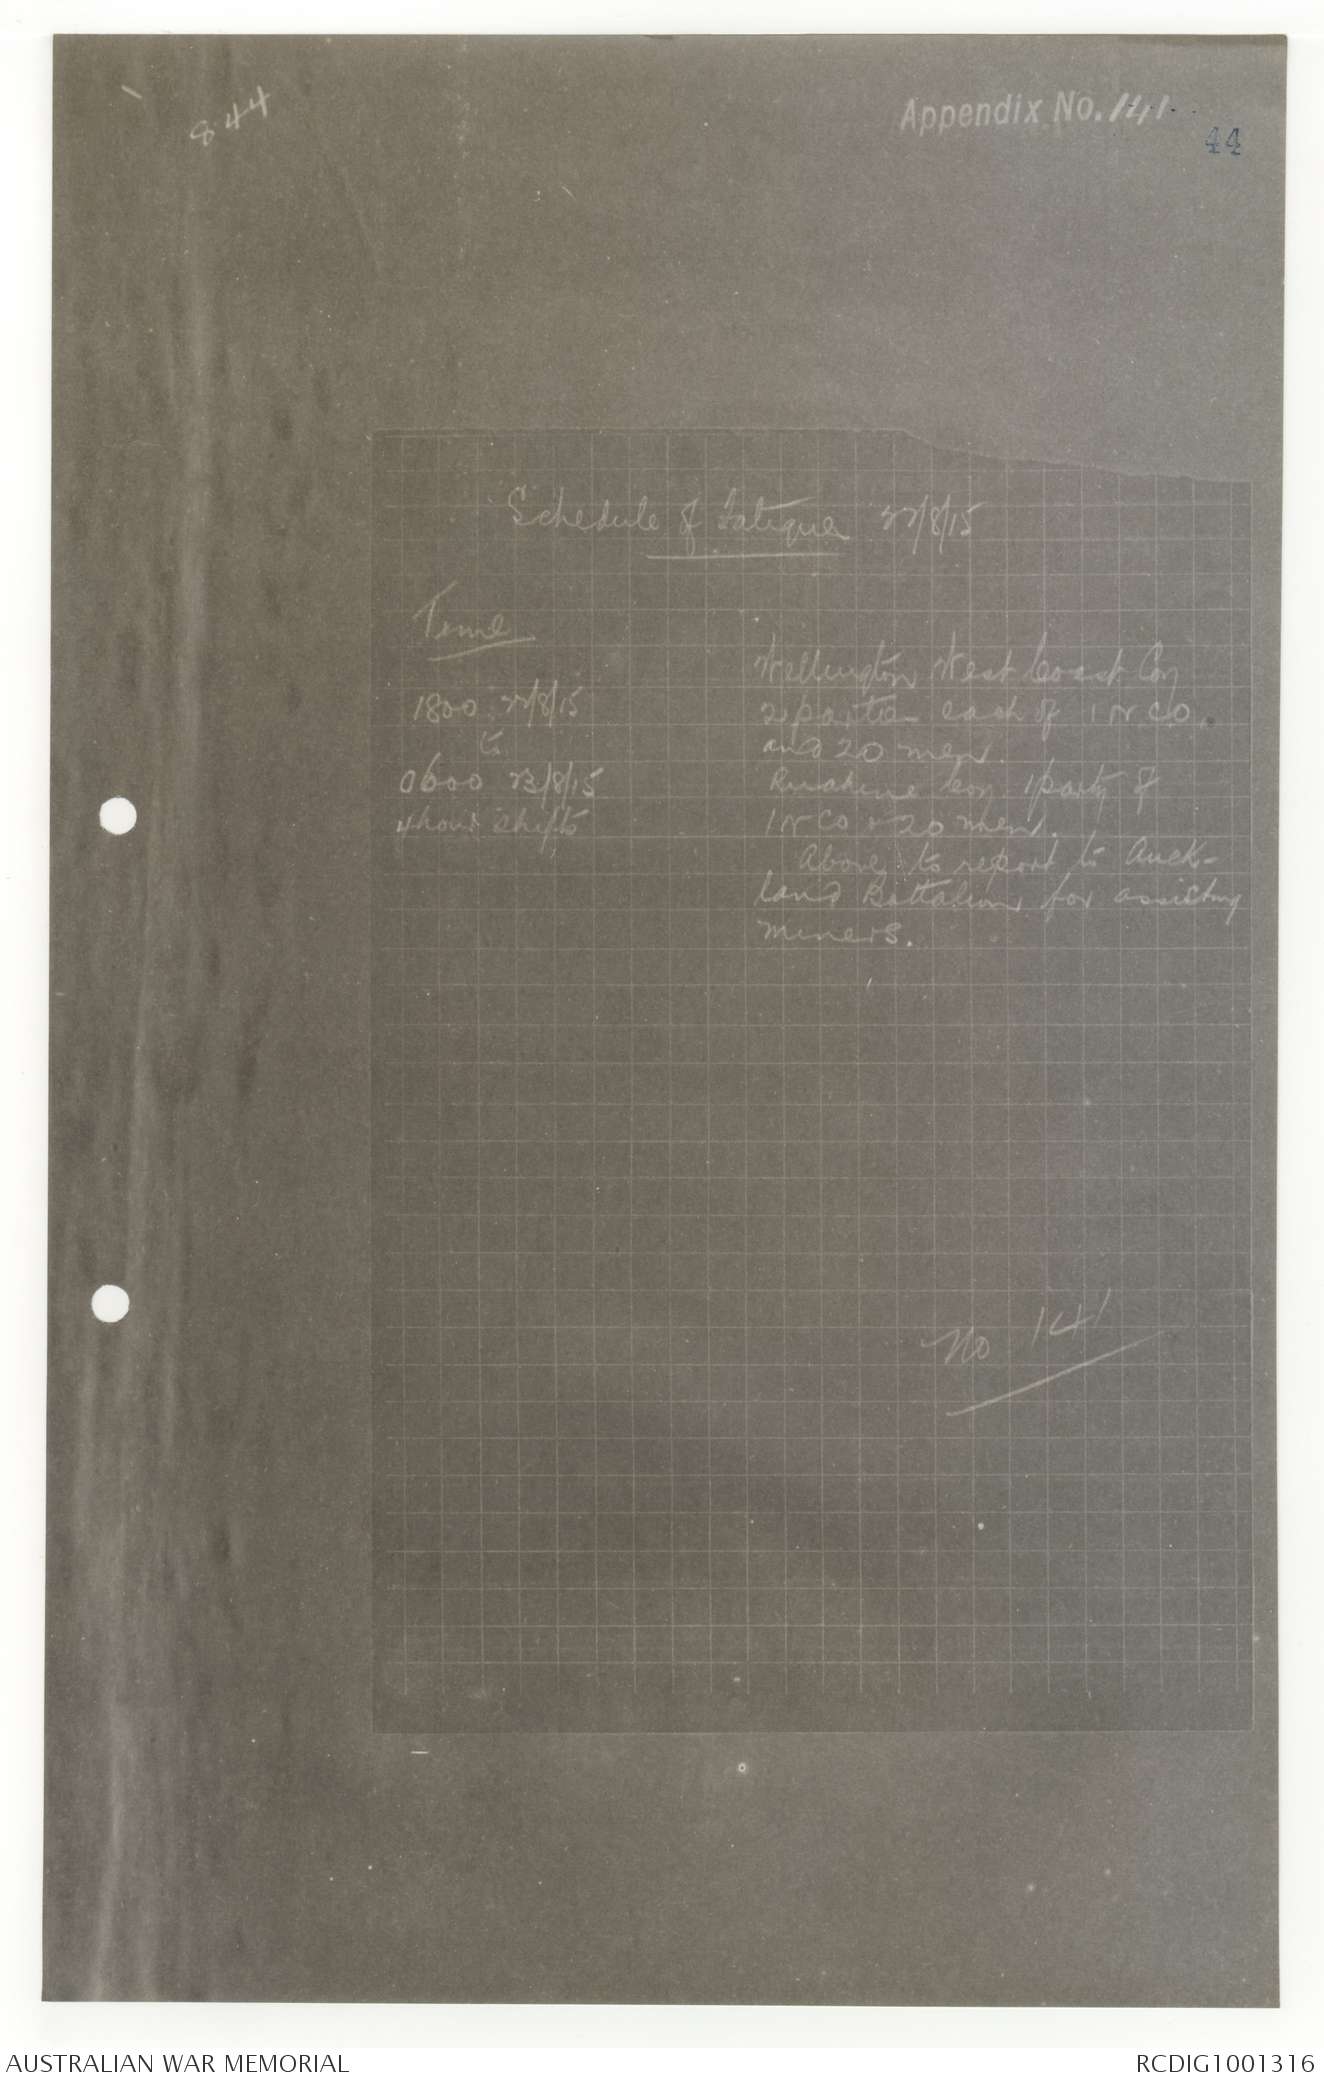 844
Appendix No. 141
44
Schedule of Fatigue 22/8/15
Time
Wellington West Coast Coy
1800 22/8/15
2 parties each of 1 NCO.
to
and 20 men.
0600 23/8/15
Ruahine Coy 1 party of
4 hour shifts
1 NCO + 20 men.
Above to report to Auck-
land Battalion for assisting
miners.
No 141
AUSTRALIAN WAR MEMORIAL
RCDIG1001316